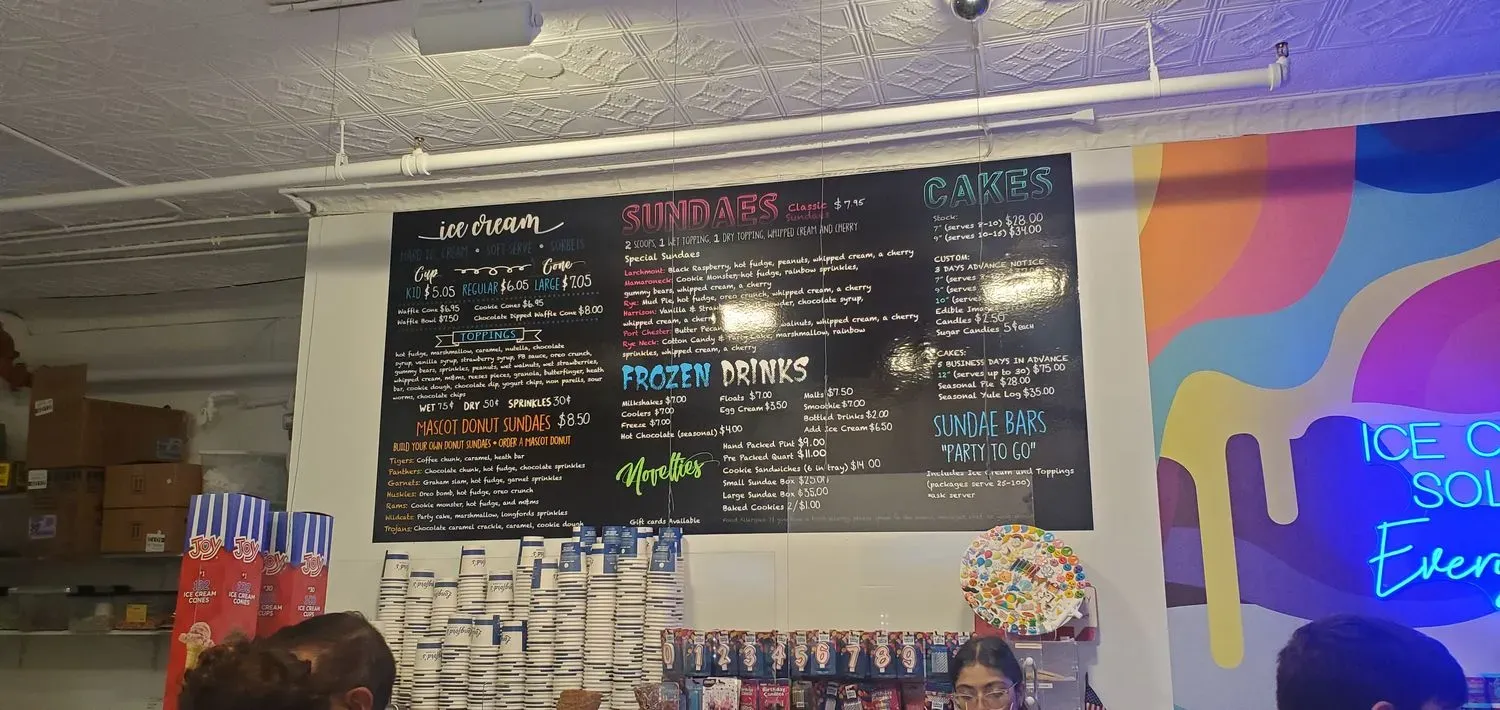 ice cream
HARD ICE CREAM • SOFT SERVE • SORBETS
Cup Cone
KID $5.05 REGULAR $6.05 LARGE $7.05
Waffle Cone $6.95 Cookie Cones $6.95
Waffle Bowl $7.50 Chocolate Dipped Waffle Cone $8.00
TOPPINGS
hot fudge, marshmallow, caramel, nutella, chocolate
syrup, vanilla syrup, strawberry syrup, PB sauce, oreo crunch,
gummy bears, sprinkles, peanuts, wet walnuts, wet strawberries,
whipped cream, m&ms, reeses pieces, granola, butterfinger, heath
bar, cookie dough, chocolate dip, yogurt chips, non pareils, sour
worms, chocolate chips
WET 75¢ DRY 50¢ SPRINKLES 30¢
MASCOT DONUT SUNDAES $8.50
BUILD YOUR OWN DONUT SUNDAES • ORDER A MASCOT DONUT
Tigers: Coffee chunk, caramel, heath bar
Panthers: Chocolate chunk, hot fudge, chocolate sprinkles
Garnets: Graham slam, hot fudge, garnet sprinkles
Huskies: Oreo bomb, hot fudge, oreo crunch
Rams: Cookie monster, hot fudge, and m&ms
Wildcats: Party cake, marshmallow, longfords sprinkles
Trojans: Chocolate caramel crackle, caramel, cookie dough
SUNDAES Classic Sundaes $7.95
2 SCOOPS, 1 WET TOPPING, 1 DRY TOPPING, WHIPPED CREAM AND CHERRY
Special Sundaes
Larchmont: Black Raspberry, hot fudge, peanuts, whipped cream, a cherry
Mamaroneck: Cookie Monster, hot fudge, rainbow sprinkles,
gummy bears, whipped cream, a cherry
Rye: Mud Pie, hot fudge, oreo crunch, whipped cream, a cherry
Harrison: Vanilla & powder, chocolate syrup,
whipped cream, a cherry
Port Chester: Butter Pecan, walnuts, whipped cream, a cherry
Rye Neck: Cotton Candy & Party Cake, marshmallow, rainbow
sprinkles, whipped cream, a cherry
FROZEN DRINKS
Milkshakes $7.00 Floats $7.00 Malts $7.50
Coolers $7.00 Egg Cream $3.50 Smoothie $7.00
Freeze $7.00 Bottled Drinks $2.00
Hot Chocolate (seasonal) $4.00 Add Ice Cream $6.50
Novelties
Hand Packed Pint $9.00
Pre Packed Quart $11.00
Cookie Sandwiches (6 in tray) $14.00
Small Sundae Box $25.00
Large Sundae Box $35.00
Baked Cookies 2/$1.00
Gift cards Available
CAKES
Stock:
7" (serves 8-10) $28.00
9" (serves 10-15) $34.00
CUSTOM:
3 DAYS ADVANCE NOTICE
7" (serves
9" (serves
10" (serves
Edible Image
Candles $2.50
Sugar Candies 5¢ each
CAKES:
5 BUSINESS DAYS IN ADVANCE
12" (serves up to 30) $75.00
Seasonal Pie $28.00
Seasonal Yule Log $35.00
SUNDAE BARS
"PARTY TO GO"
Includes Ice Cream and Toppings
(packages serve 25-100)
*ask server
ICE
SOL
Every
JOY JOY
ICE CREAM
CONES
ICE CREAM
CONES
JOY
#30
ICE CREAM
CUPS
0 1 2 3 4 5 6 7 8 9
Birthday
Candles